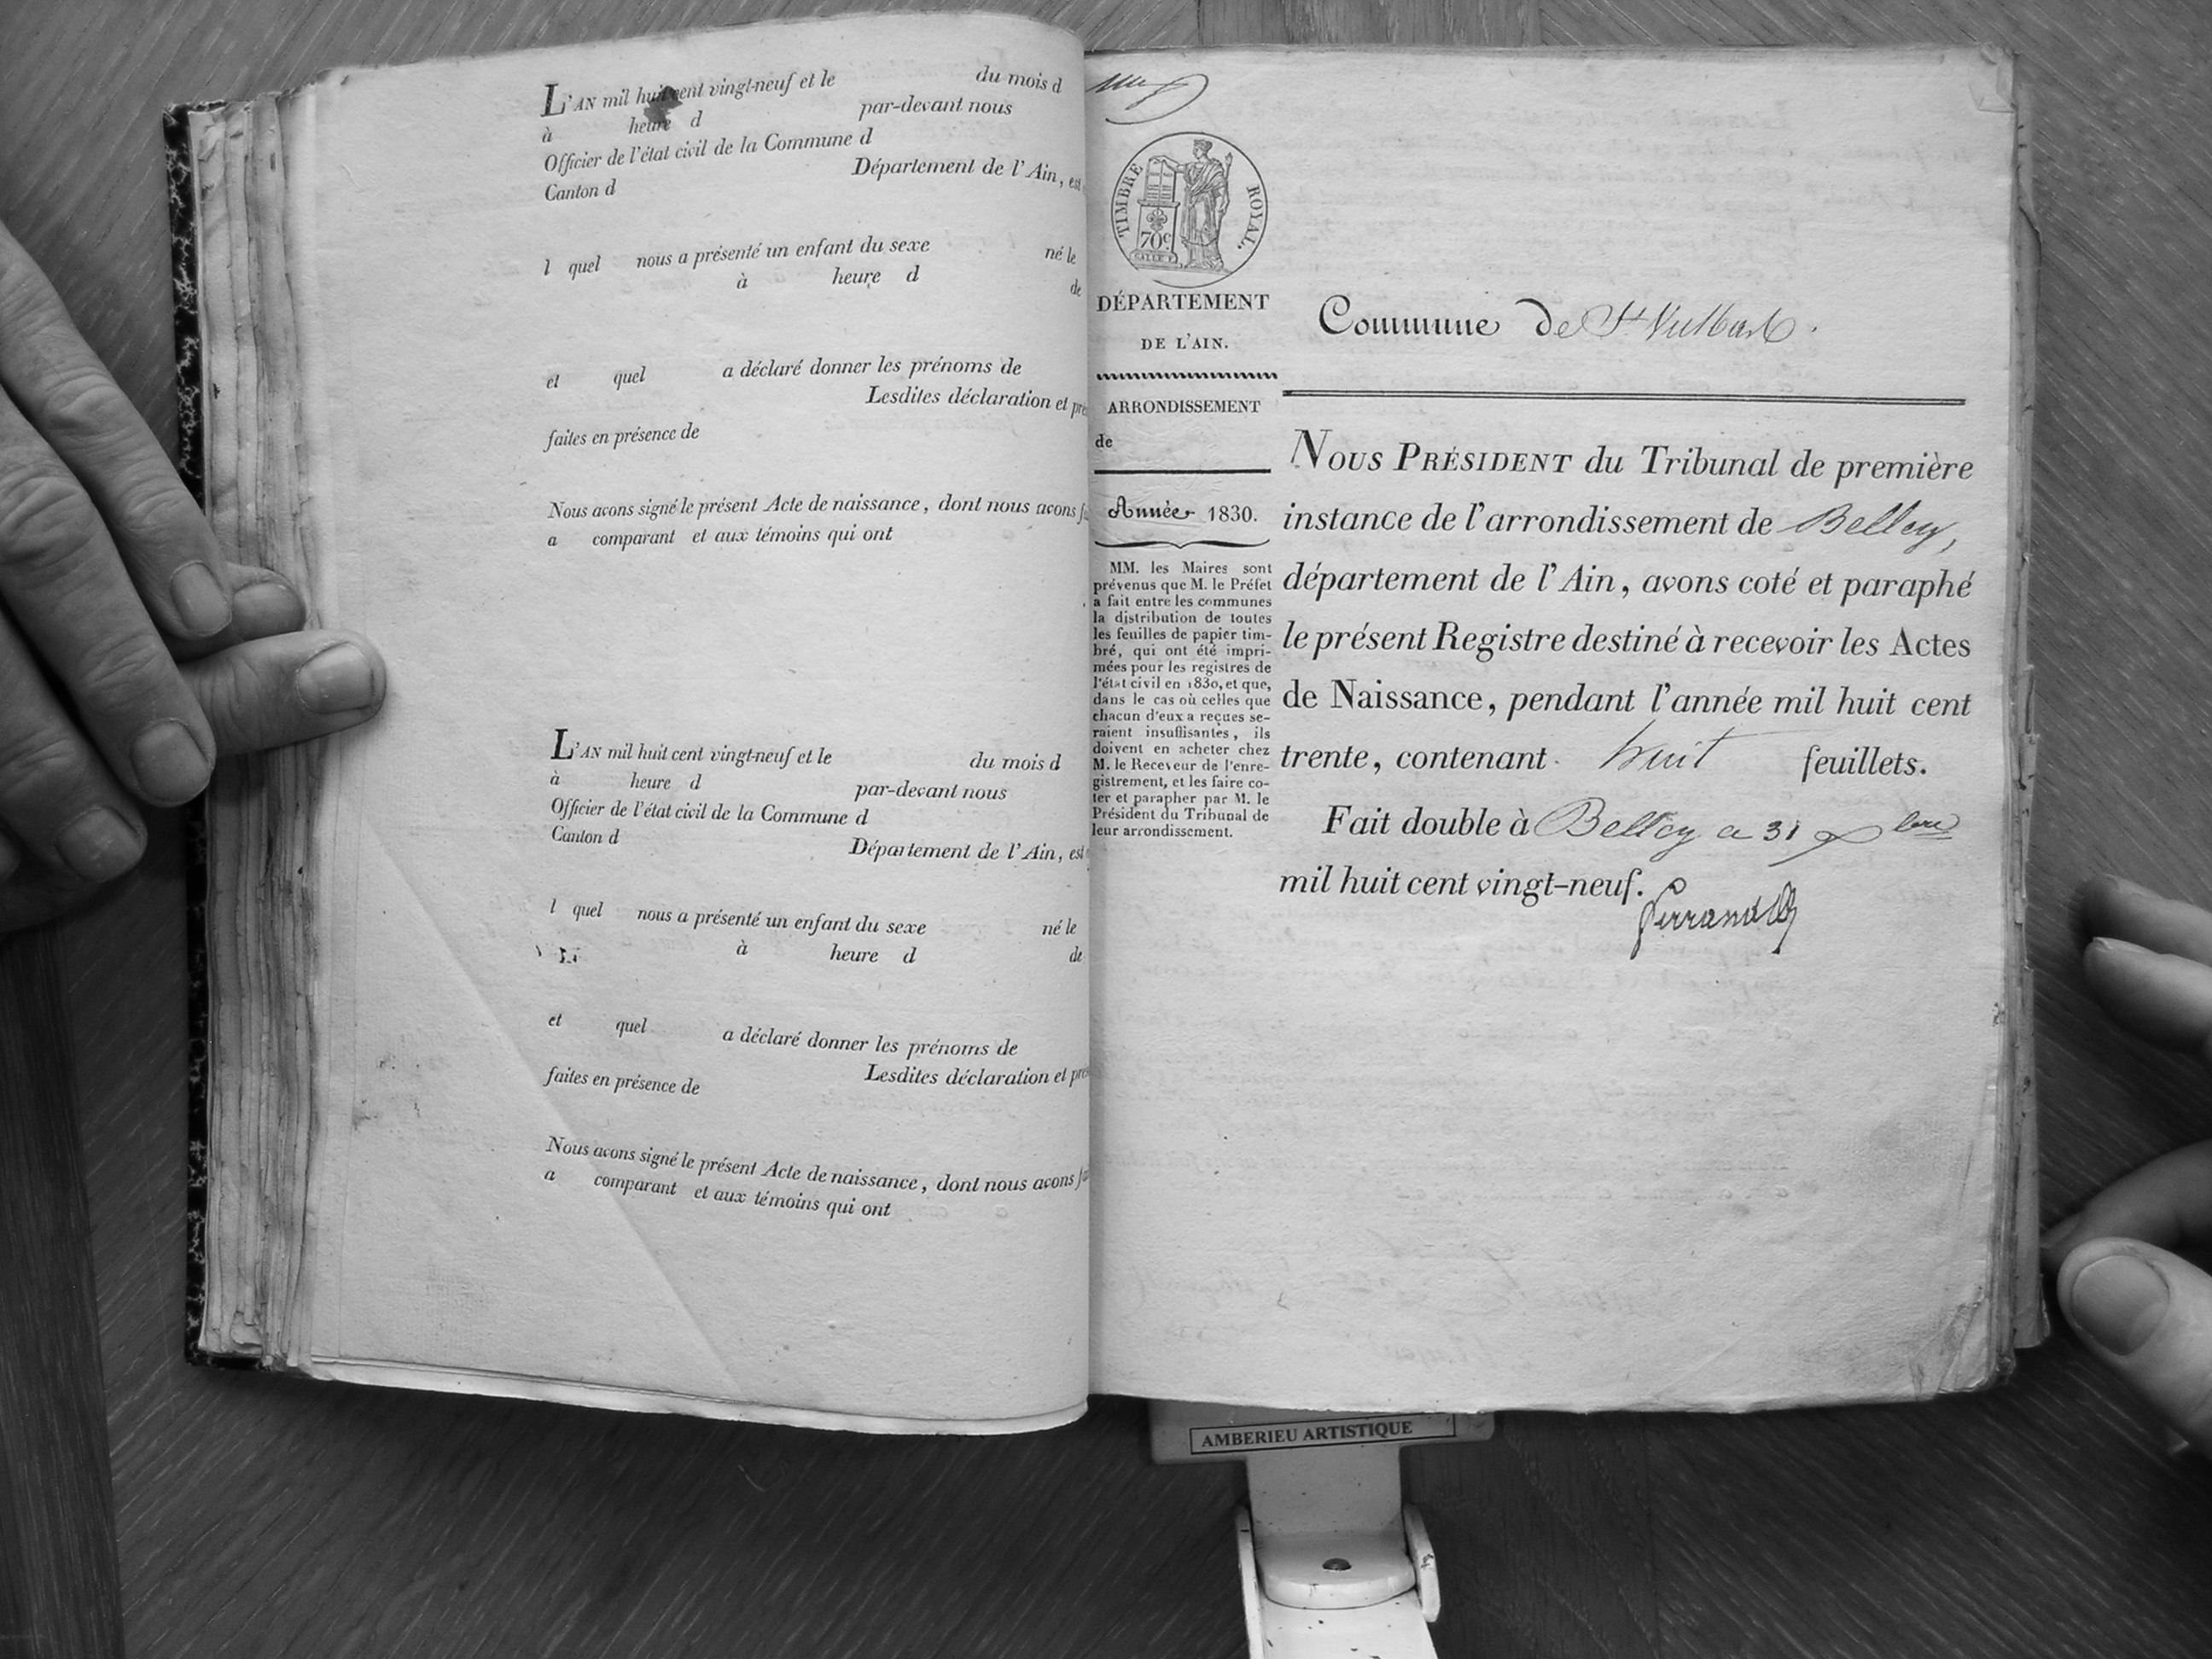 L'AN mil huit cent vingt-neuf et le du mois d
à heure d par-devant nous
Officier de l'état civil de la Commune d
Canton d Département de l'Ain, est
l quel nous a présenté un enfant du sexe né le
à heure d de
et quel a déclaré donner les prénoms de
Lesdites déclaration et pré
faites en présence de
Nous avons signé le présent Acte de naissance, dont nous avons f
a comparant et aux témoins qui ont
L'AN mil huit cent vingt-neuf et le du mois d
à heure d par-devant nous
Officier de l'état civil de la Commune d
Canton d Département de l'Ain, est
l quel nous a présenté un enfant du sexe né le
à heure d de
et quel a déclaré donner les prénoms de
Lesdites déclaration et pré
faites en présence de
Nous avons signé le présent Acte de naissance, dont nous avons f
a comparant et aux témoins qui ont
TIMBRE ROYAL.
70c
DÉPARTEMENT
DE L'AIN.
ARRONDISSEMENT
de
Année 1830.
MM. les Maires sont
prévenus que M. le Préfet
a fait entre les communes
la distribution de toutes
les feuilles de papier tim-
bré, qui ont été impri-
mées pour les registres de
l'état civil en 1830, et que,
dans le cas où celles que
chacun d'eux a reçues se-
raient insuffisantes, ils
doivent en acheter chez
M. le Receveur de l'enre-
gistrement, et les faire co-
ter et parapher par M. le
Président du Tribunal de
leur arrondissement.
Commune de St Vulbas.
NOUS PRÉSIDENT du Tribunal de première
instance de l'arrondissement de Belley,
département de l'Ain, avons coté et paraphé
le présent Registre destiné à recevoir les Actes
de Naissance, pendant l'année mil huit cent
trente, contenant huit feuillets.
Fait double à Belley ce 31 Xbre
mil huit cent vingt-neuf.
AMBERIEU ARTISTIQUE